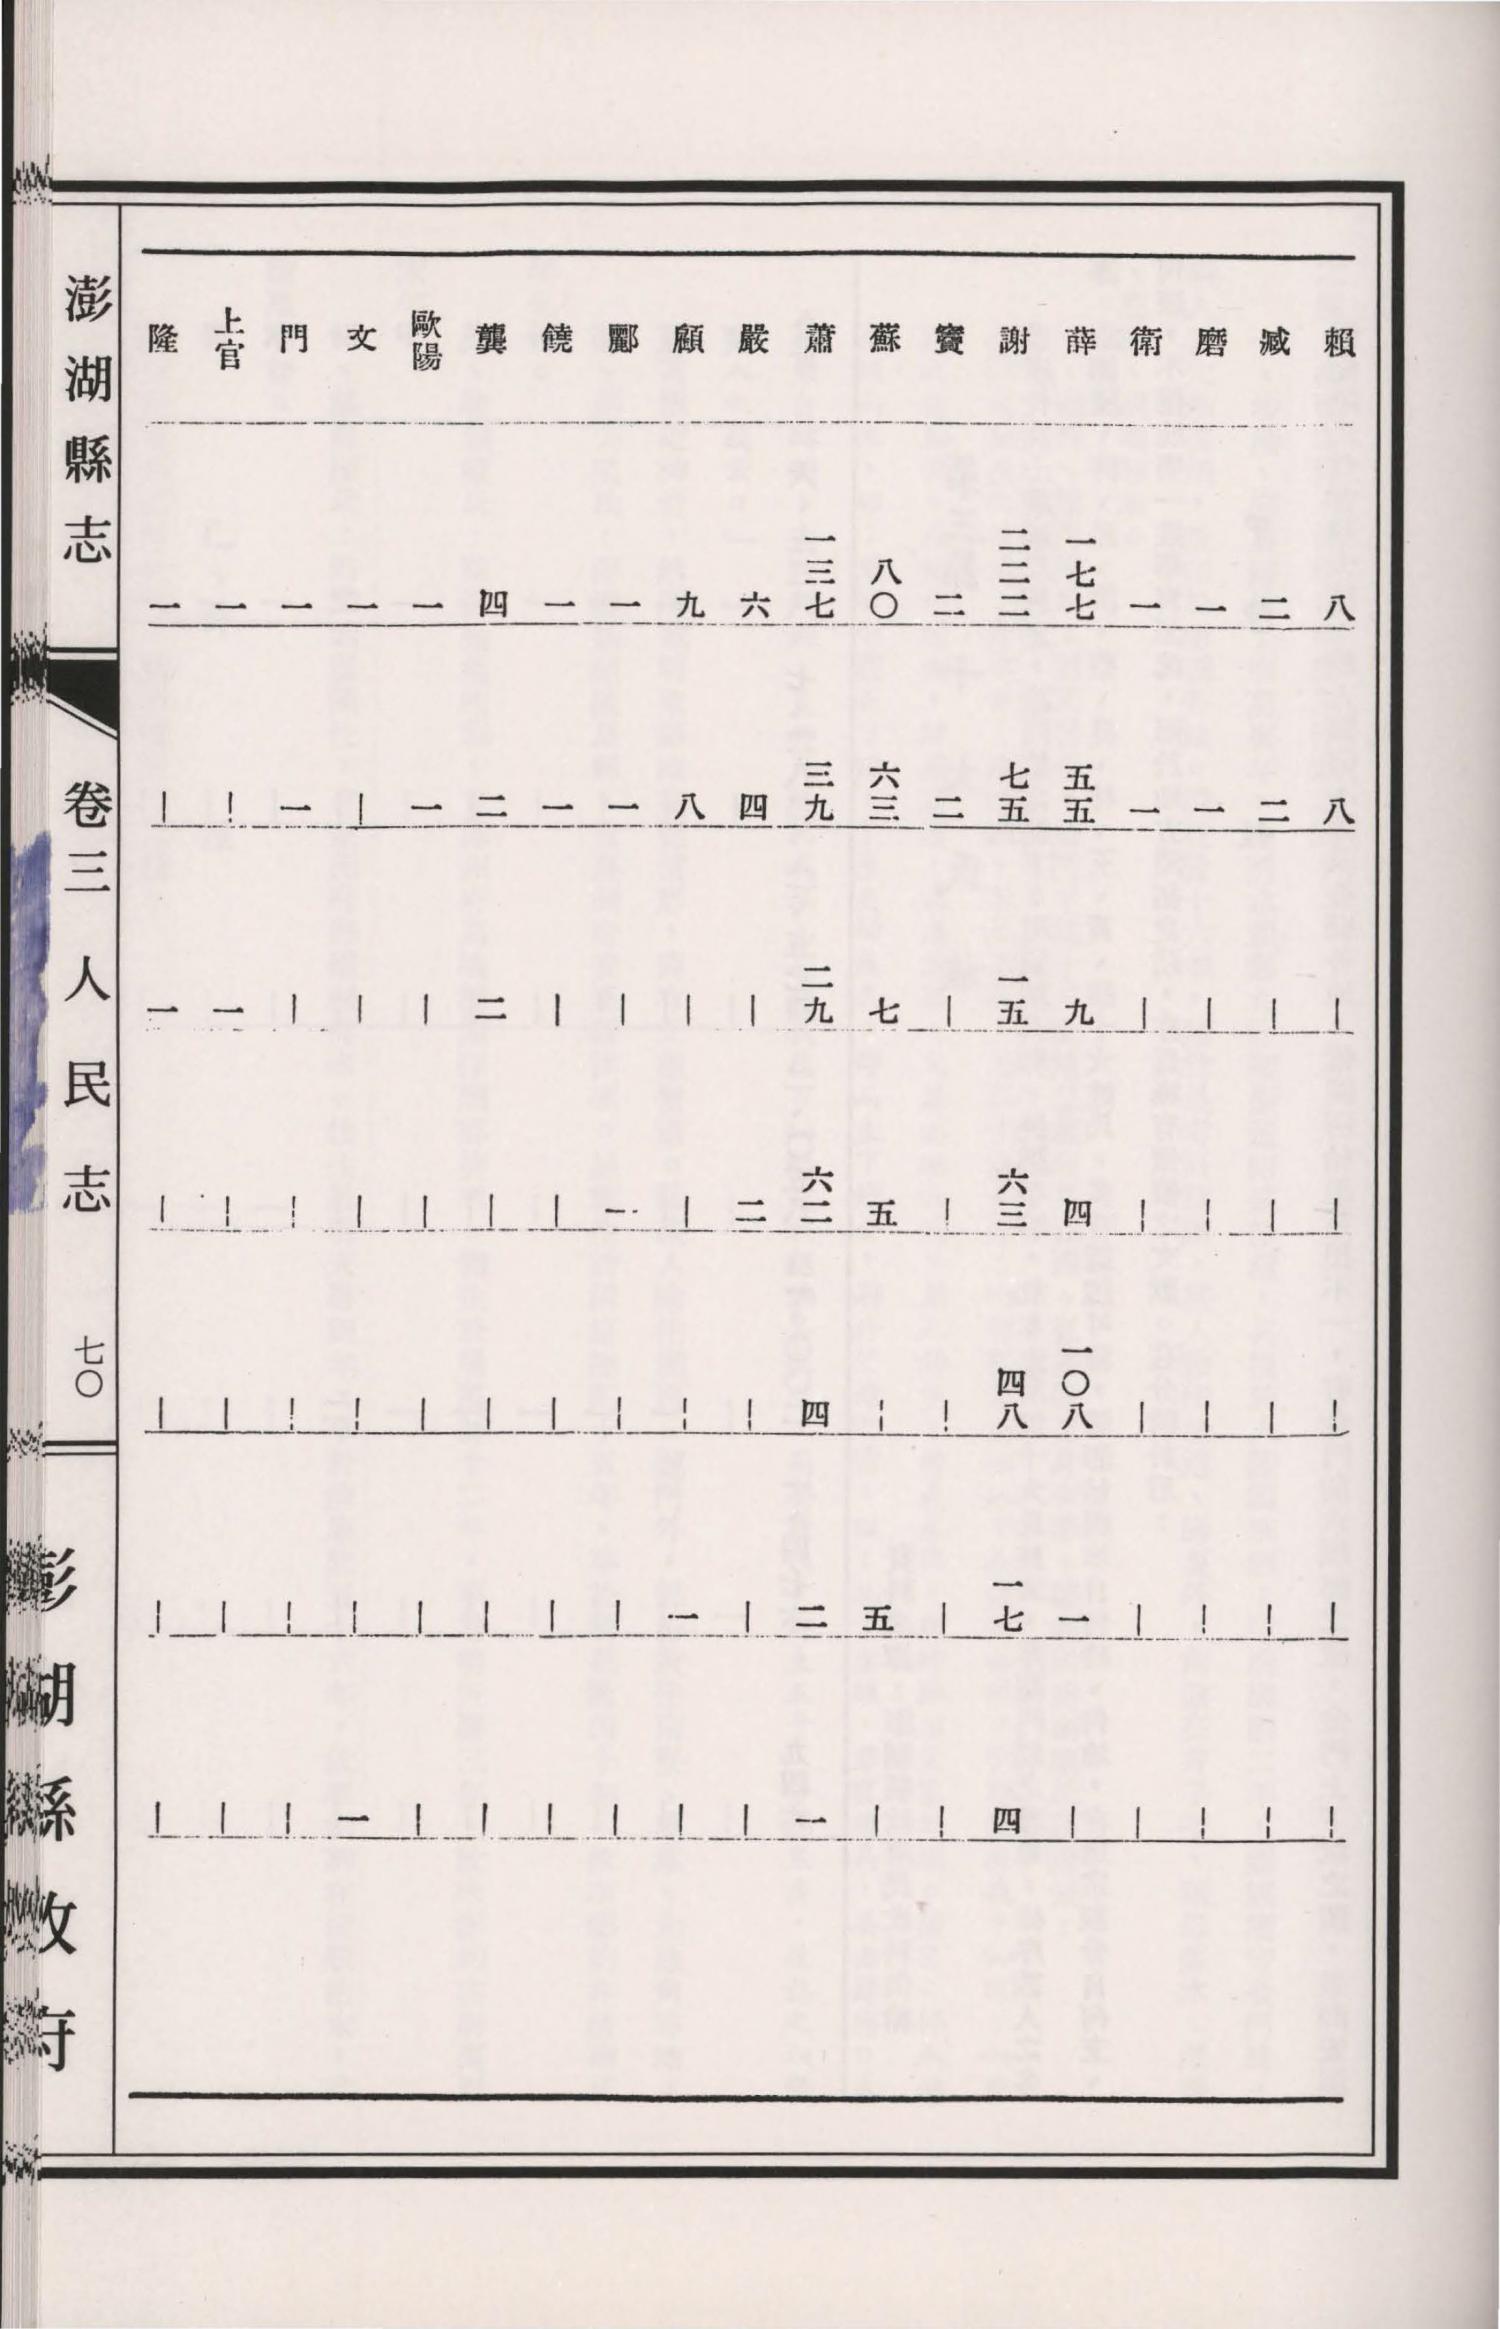 賴 八 八 ｜ ｜ ｜ ｜ ｜
臧 二 二 ｜ ｜ ｜ ｜ ｜
磨 一 一 ｜ ｜ ｜ ｜ ｜
衛 一 一 ｜ ｜ ｜ ｜ ｜
薛 一七七 五五 九 四 一〇八 一 ｜
謝 二二二 七五 一五 六三 四八 一七 四
竇 二 二 ｜ ｜ ｜ ｜ ｜
蘇 八〇 六三 七 五 ｜ 五 ｜
蕭 一三七 三九 二九 六二 四 二 一
嚴 六 四 ｜ 二 ｜ ｜ ｜
顧 九 八 ｜ ｜ ｜ 一 ｜
酈 一 一 ｜ 一 ｜ ｜ ｜
饒 一 一 ｜ ｜ ｜ ｜ ｜
龔 四 二 二 ｜ ｜ ｜ ｜
歐陽 一 一 ｜ ｜ ｜ ｜ ｜
文 一 ｜ ｜ ｜ ｜ ｜ 一
門 一 一 ｜ ｜ ｜ ｜ ｜
上官 一 ｜ 一 ｜ ｜ ｜ ｜
隆 一 ｜ 一 ｜ ｜ ｜ ｜
澎湖縣志
卷三人民志
七〇
澎湖縣政府